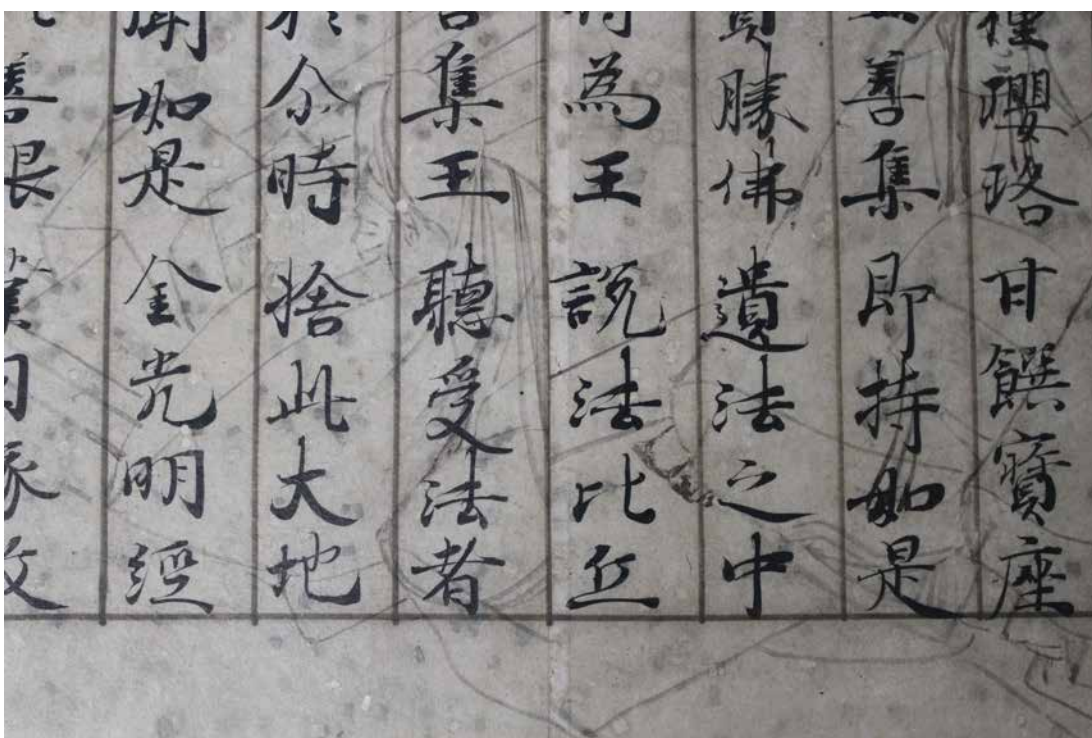 種瓔珞甘饌寶座
善集即持如是
寶勝佛遺法之中
時為王說法比丘
善集王聽受法者
於尒時捨此大地
聞如是金光明經
善根